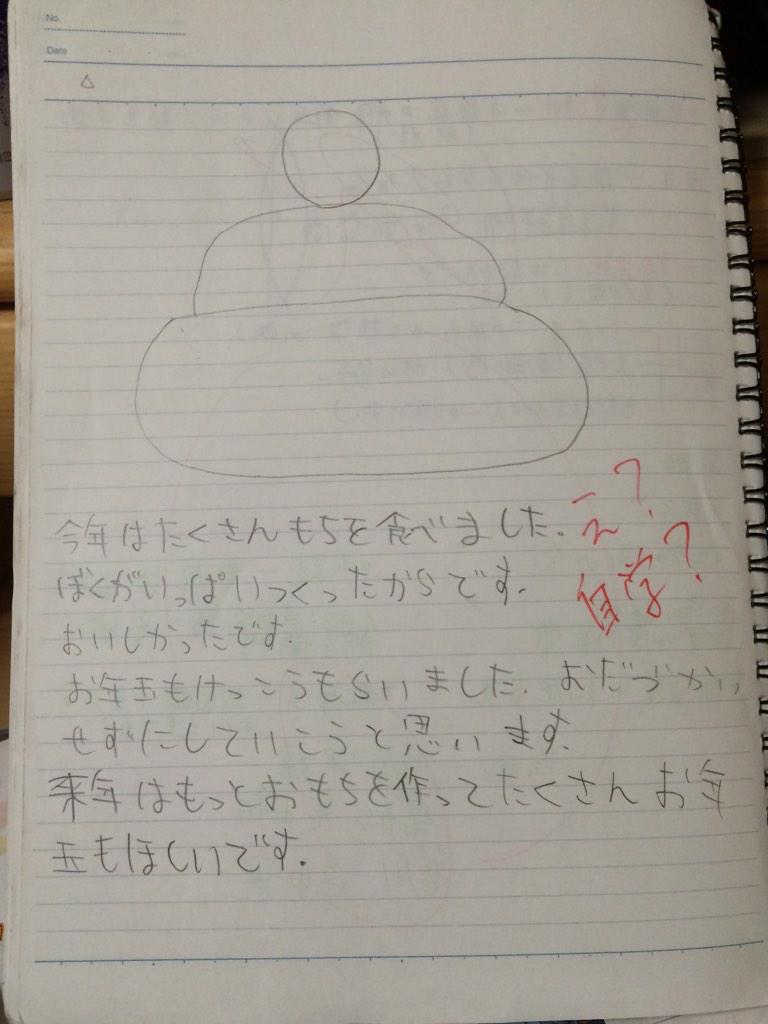 No.
Date
今年はたくさんもちを食べました。
ぼくがいっぱいつくったからです。
おいしかったです。
お年玉もけっこうもらいました。おだづかい
せずにしていこうと思います。
来年はもっとおもちを作ってたくさんお年
玉もほしいです。
え?
自学?